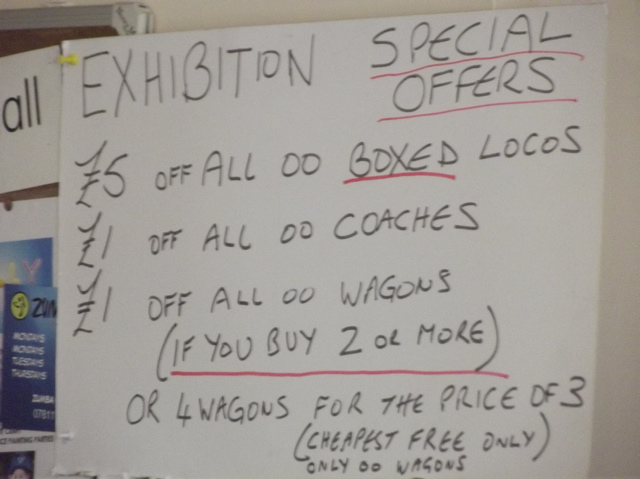 EXHIBITION SPECIAL
OFFERS
£5 OFF ALL OO BOXED LOCOS
£1 OFF ALL OO COACHES
£1 OFF ALL OO WAGONS
(IF YOU BUY 2 OR MORE)
OR 4 WAGONS FOR THE PRICE OF 3
(CHEAPEST FREE ONLY)
ONLY OO WAGONS
all
MONDAYS
MONDAYS
TUESDAYS
THURSDAYS
ZUMBA